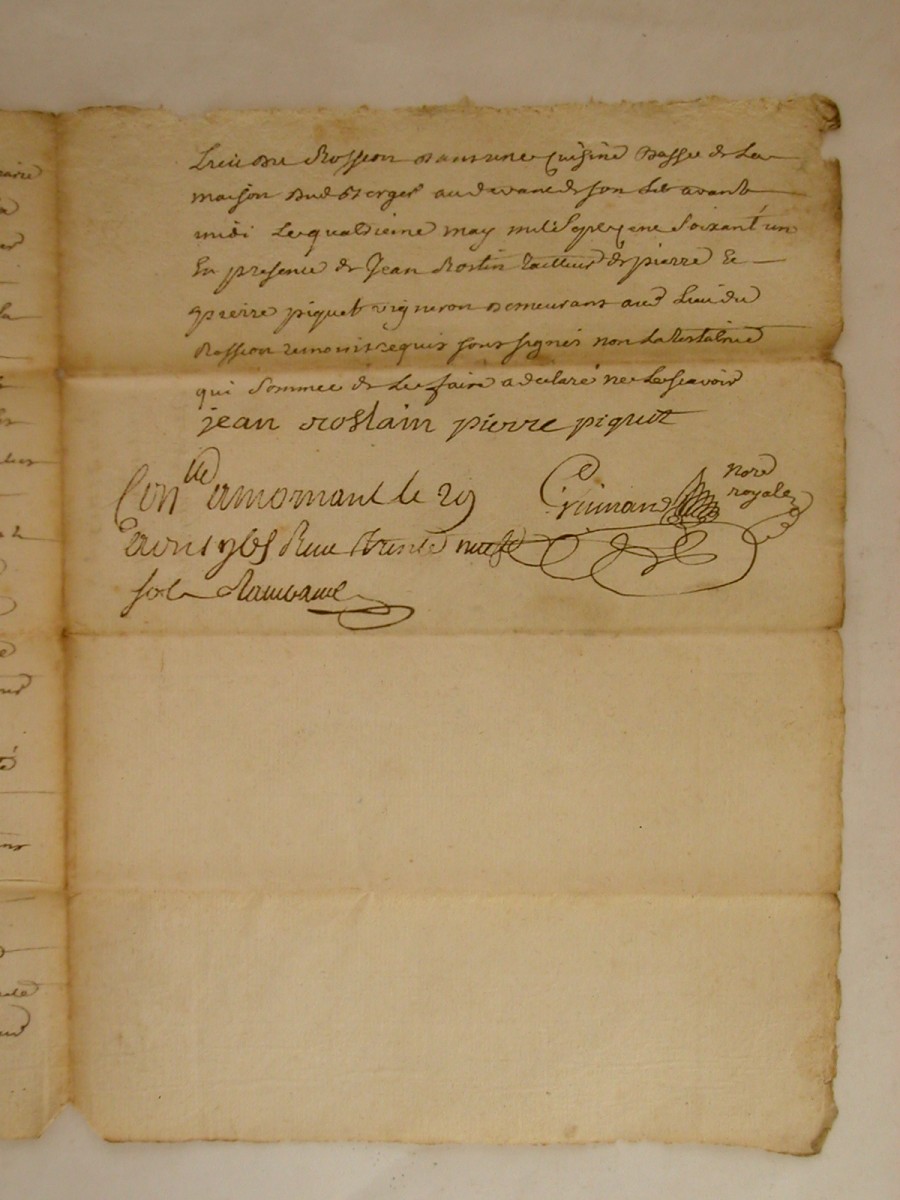 Lieu de Rossion dans une cuisine basse de la
maison dud Berger au devant de son lit avant
midi le quatrieme may mil sept cent soixant'un
En presence de Jean Rostin tailleur de pierre Et
pierre piquet vigneron demeurans aud Lieu du
Rossion temoins requis soussignés non la testatrice
qui sommée de le faire a declaré ne le scavoir
jean rostain pierre piquet
Con^lle a mornant le 29
avril 1765 Reçu trente neuf
sols
Guinand nore
royale